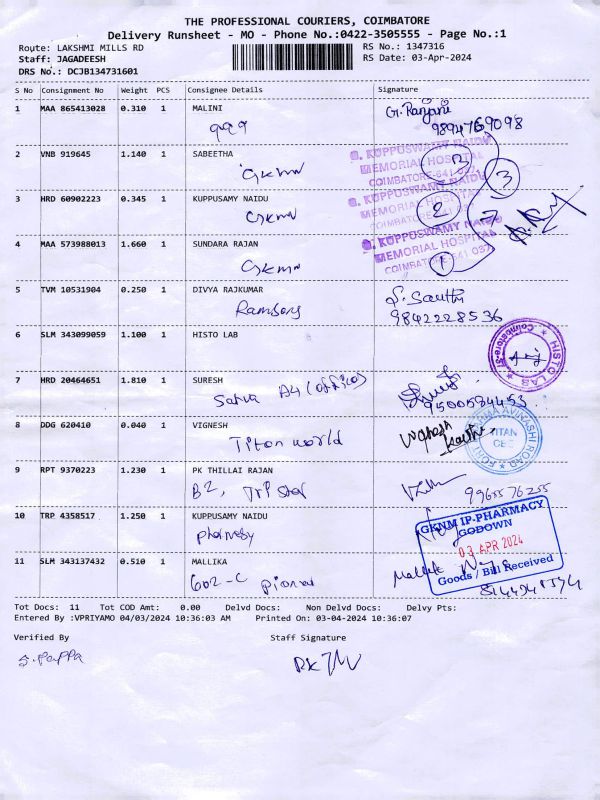 THE PROFESSIONAL COURIERS, COIMBATORE
Delivery Runsheet - MO - Phone No.:0422-3505555 - Page No.:1
Route: LAKSHMI MILLS RD
RS No.: 1347316
Staff: JAGADEESH
RS Date: 03-Apr-2024
DRS No.: DCJB134731601
S No Consignment No Weight PCS Consignee Details Signature
1 MAA 865413028 0.310 1 MALINI G. Ranjani
999 9894769098
2 VNB 919645 1.140 1 SABEETHA
GKMH
G. KUPPUSWAMY NAIDU
MEMORIAL HOSPITAL
COIMBATORE-641 037
3 HRD 60902223 0.345 1 KUPPUSAMY NAIDU
GKMH
G. KUPPUSWAMY NAIDU
MEMORIAL HOSPITAL
COIMBATORE-641 037
2 3
4 MAA 573988013 1.660 1 SUNDARA RAJAN
GKMH
G. KUPPUSWAMY NAIDU
MEMORIAL HOSPITAL
COIMBATORE-641 037
1
5 TVM 10531904 0.250 1 DIVYA RAJKUMAR
9842228536
6 SLM 343099059 1.100 1 HISTO LAB
HISTO LAB
7 HRD 20464651 1.810 1 SURESH
A4 (office)
9500594453
8 DDG 620410 0.040 1 VIGNESH Vignesh
Titon world
AVINASHI ROAD
TITAN
9 RPT 9370223 1.230 1 PK THILLAI RAJAN
B2, Trp Star
9965576255
10 TRP 4358517 1.250 1 KUPPUSAMY NAIDU
GKNM IP-PHARMACY
GODOWN
03 APR 2024
Goods / Bill Received
11 SLM 343137432 0.510 1 MALLIKA
602-C
Tot Docs: 11 Tot COD Amt: 0.00 Delvd Docs: Non Delvd Docs: Delvy Pts:
Entered By :VPRIYAMO 04/03/2024 10:36:03 AM Printed On: 03-04-2024 10:36:07
Verified By Staff Signature